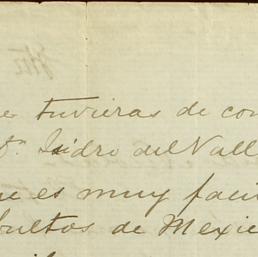 tuvieras de con
Dn. Isidro del Vall
ue es muy faci
bultos de Mexic